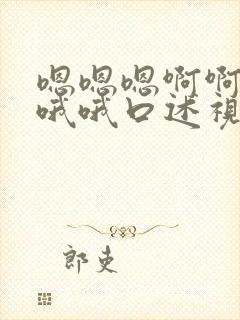 嗯嗯嗯啊啊
哦哦口述視
郎吏